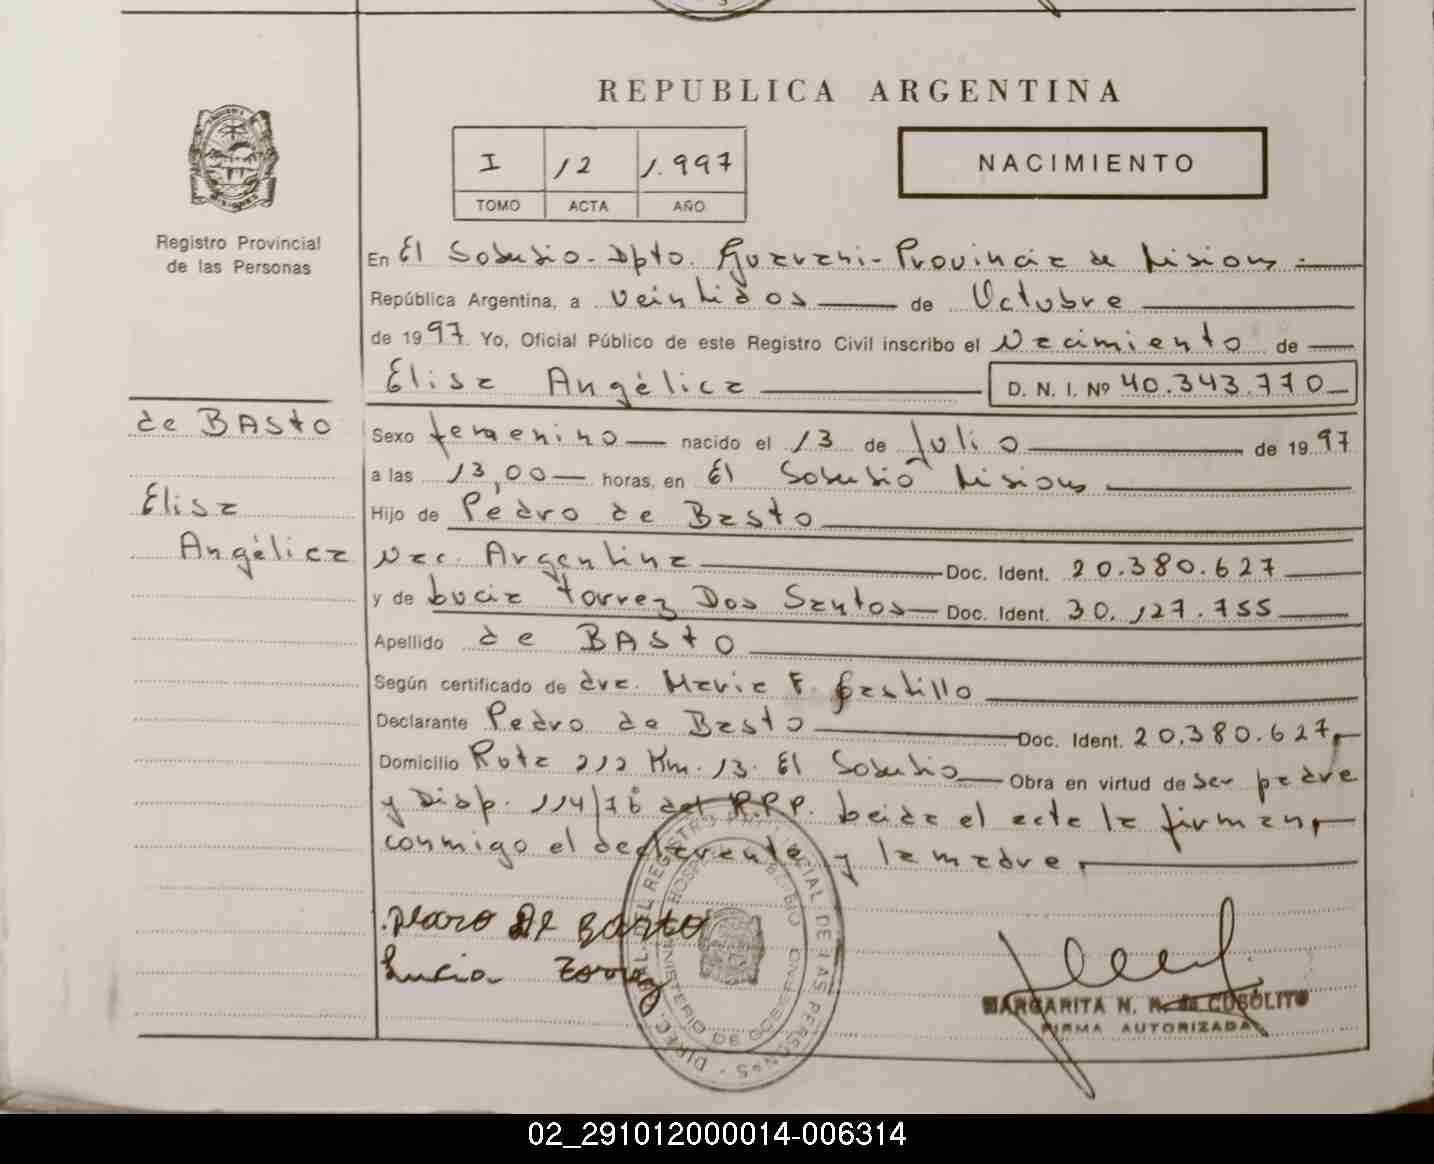 REPUBLICA ARGENTINA
I 12 1.997
TOMO ACTA AÑO
NACIMIENTO
Registro Provincial
de las Personas
En El Soberbio - Dpto. Guarani - Provincia de Misiones
República Argentina, a veintidos de Octubre
de 1997 Yo, Oficial Público de este Registro Civil inscribo el Nacimiento de
Elisa Angélica D. N. I. Nº 40.343.770
de BASTO
Elisa
Angélica
Sexo femenino nacido el 13 de Julio de 1997
a las 13,00 horas, en El Soberbio Misiones
Hijo de Pedro de Basto
Nac. Argentina Doc. Ident. 20.380.627
y de Lucia Torrez Dos Santos Doc. Ident. 30.127.755
Apellido de BASTO
Según certificado de dra. Maria F. Castillo
Declarante Pedro de Basto Doc. Ident. 20.380.627
Domicilio Ruta 212 Km. 13. El Soberbio Obra en virtud de ser padre
y Disp. 114/76 del R.P.P. Leida el acta la firman
conmigo el declarante y la madre
Pedro De Basto
Lucia Torrez
DIREC. GRAL. DEL REGISTRO PROVINCIAL DE LAS PERSONAS
MINISTERIO DE GOBIERNO
HOSPITAL
MARGARITA N. R. de CUSOLITO
FIRMA AUTORIZADA
02_291012000014-006314